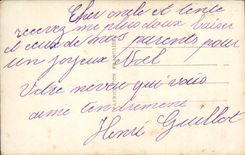 Cher oncle et tente
recevez me plus doux baiser
et ceux de mes parents pour
un joyeux Noël
Votre neveu qui vous
aime tendrement
Henri Guillot